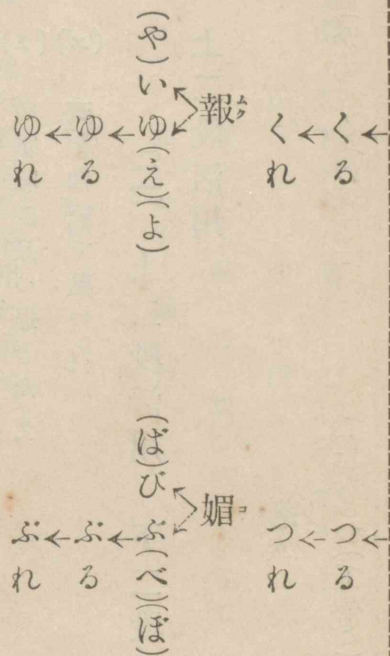 くる
くれ
報ムク
(や)いゆ(え)(よ)
ゆる
ゆれ
つる
つれ
媚コ
(ば)びぶ(べ)(ぼ)
ぶる
ぶれ